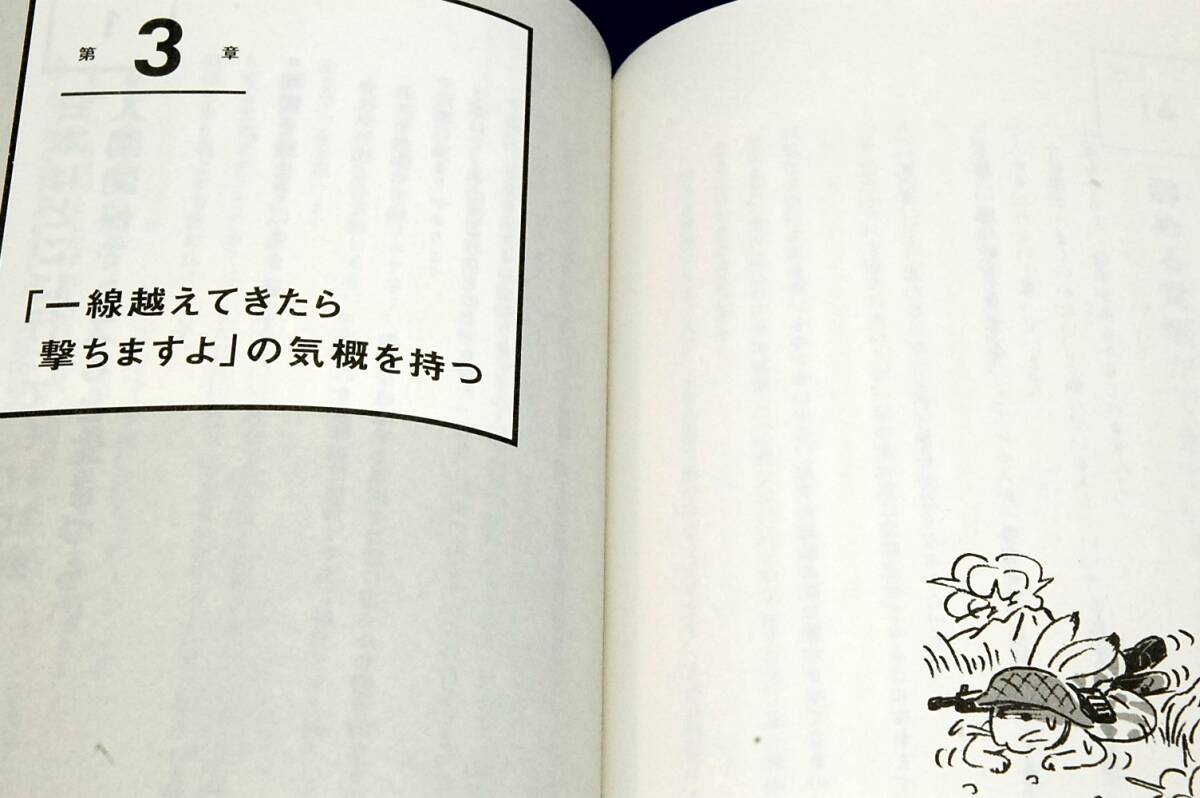 第3章
「一線越えてきたら
撃ちますよ」の気概を持つ